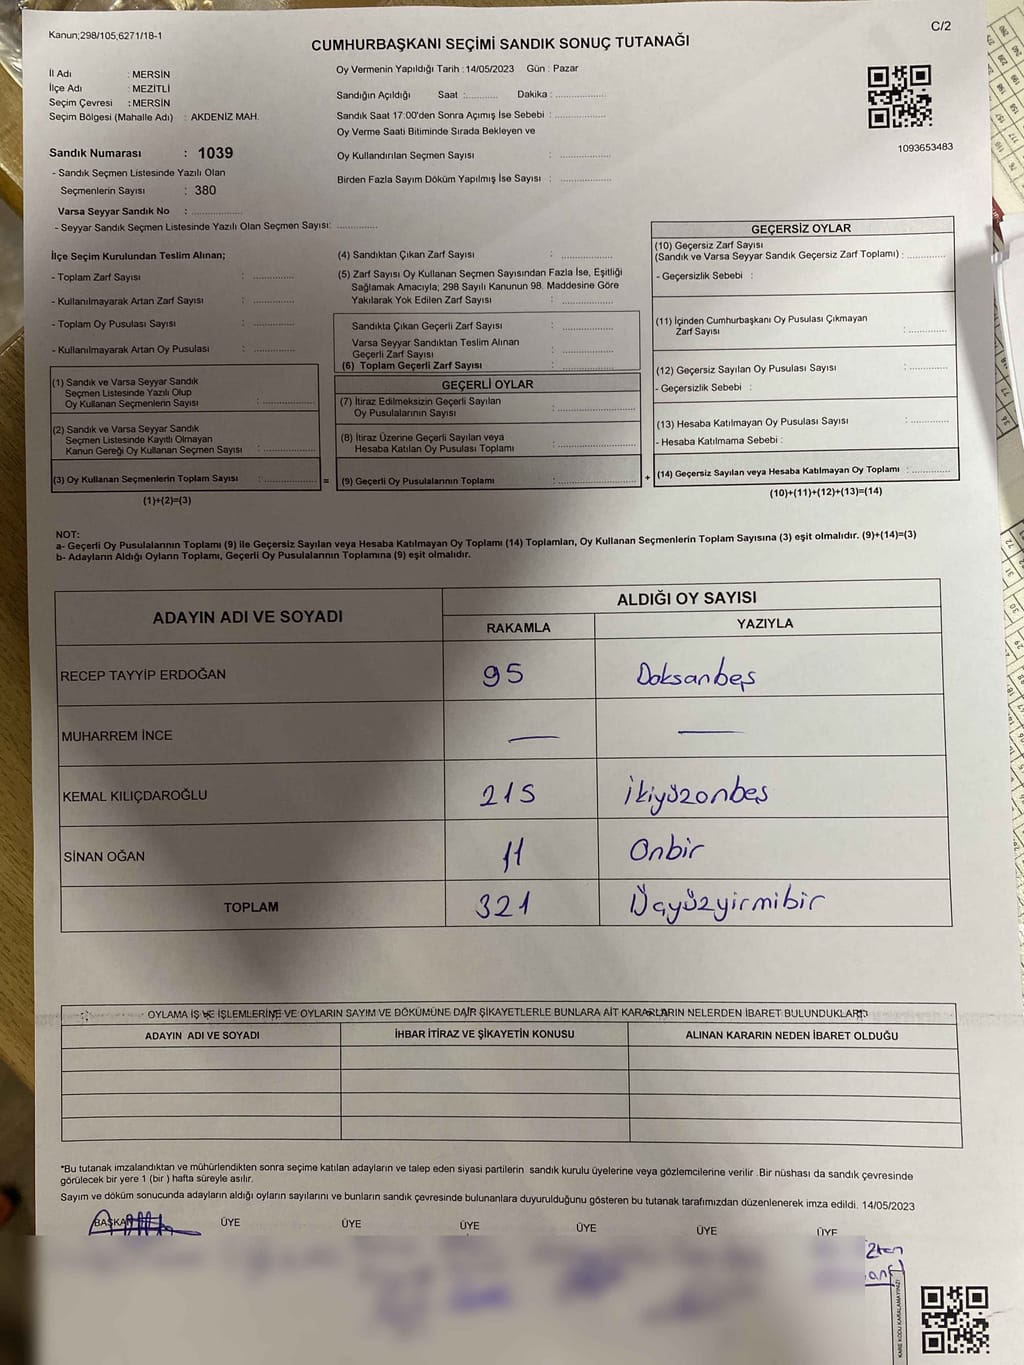 Kanun;298/105,6271/18-1
C/2
CUMHURBAŞKANI SEÇİMİ SANDIK SONUÇ TUTANAĞI
İl Adı : MERSİN
İlçe Adı : MEZİTLİ
Seçim Çevresi : MERSİN
Seçim Bölgesi (Mahalle Adı) : AKDENİZ MAH.
Sandık Numarası : 1039
- Sandık Seçmen Listesinde Yazılı Olan
Seçmenlerin Sayısı : 380
Varsa Seyyar Sandık No : ....................
- Seyyar Sandık Seçmen Listesinde Yazılı Olan Seçmen Sayısı: ................
Oy Vermenin Yapıldığı Tarih : 14/05/2023 Gün : Pazar
Sandığın Açıldığı Saat :............ Dakika : ....................
Sandık Saat 17:00'den Sonra Açımış İse Sebebi : ....................
Oy Verme Saati Bitiminde Sırada Bekleyen ve
Oy Kullandırılan Seçmen Sayısı : ....................
Birden Fazla Sayım Döküm Yapılmış İse Sayısı : ....................
1093653483
İlçe Seçim Kurulundan Teslim Alınan;
- Toplam Zarf Sayısı : ................
- Kullanılmayarak Artan Zarf Sayısı : ................
- Toplam Oy Pusulası Sayısı : ................
- Kullanılmayarak Artan Oy Pusulası : ................
(1) Sandık ve Varsa Seyyar Sandık
Seçmen Listesinde Yazılı Olup
Oy Kullanan Seçmenlerin Sayısı : ....................
(2) Sandık ve Varsa Seyyar Sandık
Seçmen Listesinde Kayıtlı Olmayan
Kanun Gereği Oy Kullanan Seçmen Sayısı : ....................
(3) Oy Kullanan Seçmenlerin Toplam Sayısı : ....................
(1)+(2)=(3)
(4) Sandıktan Çıkan Zarf Sayısı : ....................
(5) Zarf Sayısı Oy Kullanan Seçmen Sayısından Fazla İse, Eşitliği
Sağlamak Amacıyla; 298 Sayılı Kanunun 98. Maddesine Göre
Yakılarak Yok Edilen Zarf Sayısı : ....................
Sandıkta Çıkan Geçerli Zarf Sayısı : ....................
Varsa Seyyar Sandıktan Teslim Alınan
Geçerli Zarf Sayısı : ....................
(6) Toplam Geçerli Zarf Sayısı : ....................
GEÇERLİ OYLAR
(7) İtiraz Edilmeksizin Geçerli Sayılan
Oy Pusulalarının Sayısı : ....................
(8) İtiraz Üzerine Geçerli Sayılan veya
Hesaba Katılan Oy Pusulası Toplamı : ....................
= (9) Geçerli Oy Pusulalarının Toplamı : ....................
GEÇERSİZ OYLAR
(10) Geçersiz Zarf Sayısı
(Sandık ve Varsa Seyyar Sandık Geçersiz Zarf Toplamı) : ..............
- Geçersizlik Sebebi :
(11) İçinden Cumhurbaşkanı Oy Pusulası Çıkmayan
Zarf Sayısı : ..............
(12) Geçersiz Sayılan Oy Pusulası Sayısı : ..............
- Geçersizlik Sebebi :
(13) Hesaba Katılmayan Oy Pusulası Sayısı : ..............
- Hesaba Katılmama Sebebi :
+ (14) Geçersiz Sayılan veya Hesaba Katılmayan Oy Toplamı : ..............
(10)+(11)+(12)+(13)=(14)
NOT:
a- Geçerli Oy Pusulalarının Toplamı (9) ile Geçersiz Sayılan veya Hesaba Katılmayan Oy Toplamı (14) Toplamları, Oy Kullanan Seçmenlerin Toplam Sayısına (3) eşit olmalıdır. (9)+(14)=(3)
b- Adayların Aldığı Oyların Toplamı, Geçerli Oy Pusulalarının Toplamına (9) eşit olmalıdır.
ADAYIN ADI VE SOYADI
ALDIĞI OY SAYISI
RAKAMLA YAZIYLA
RECEP TAYYİP ERDOĞAN 95 Doksanbeş
MUHARREM İNCE — —
KEMAL KILIÇDAROĞLU 215 İkiyüzonbeş
SİNAN OĞAN 11 Onbir
TOPLAM 321 Üçyüzyirmibir
OYLAMA İŞ VE İŞLEMLERİNE VE OYLARIN SAYIM VE DÖKÜMÜNE DAİR ŞİKAYETLERLE BUNLARA AİT KARARLARIN NELERDEN İBARET BULUNDUKLARI
ADAYIN ADI VE SOYADI İHBAR İTİRAZ VE ŞİKAYETİN KONUSU ALINAN KARARIN NEDEN İBARET OLDUĞU
*Bu tutanak imzalandıktan ve mühürlendikten sonra seçime katılan adayların ve talep eden siyasi partilerin sandık kurulu üyelerine veya gözlemcilerine verilir .Bir nüshası da sandık çevresinde
görülecek bir yere 1 (bir ) hafta süreyle asılır.
Sayım ve döküm sonucunda adayların aldığı oyların sayılarını ve bunların sandık çevresinde bulunanlara duyurulduğunu gösteren bu tutanak tarafımızdan düzenlenerek imza edildi. 14/05/2023
BAŞKAN ÜYE ÜYE ÜYE ÜYE ÜYE ÜYE
KARE KODU KARALAMAYINIZ!